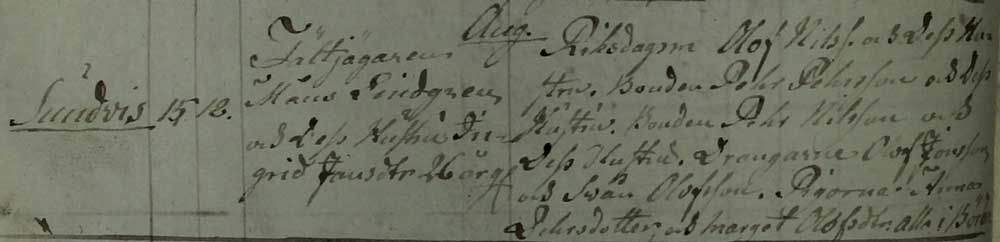 Aug.
Sundvis 15. 12.
Fältjägaren
Måns Lindgren
och Dess Hustru In-
grid Jonsdtr
Riksdagsm Olof Nilss. och Dess Hu-
stru. Bonden Pehr Pehrsson och Dess
Hustru. Bonden Pehr Nilsson och
Dess Hustru. Drängarne Olof Jonsson
och Swän Olofsson. Pigorna Anna
Pehrsdotter, och Marget Olofsdtr. alla i